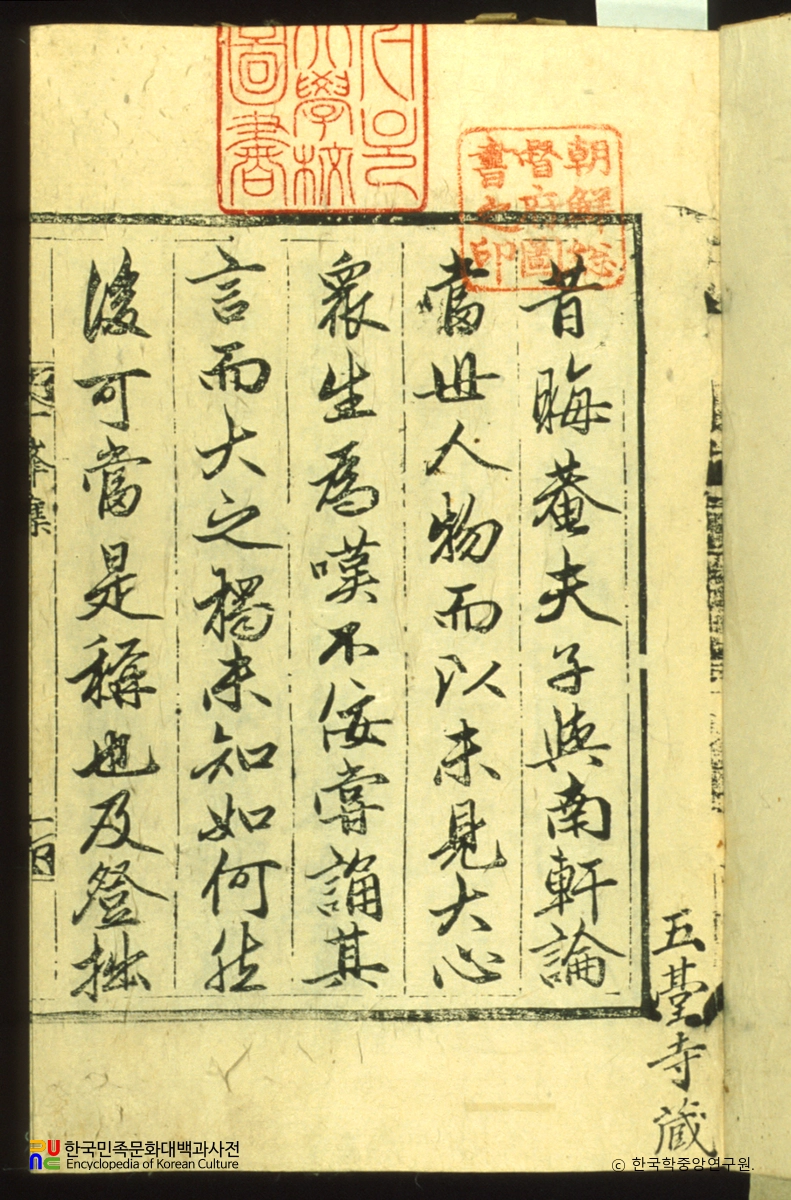 서울
大學校
圖書
朝鮮総
督府圖
書之印
昔晦菴夫子與南軒論
當世人物而以未見大心
衆生爲嘆不佞嘗誦其
言而大之獨未知如何然
後可當是稱也及登拙
峯集
五臺寺藏
한국민족문화대백과사전
Encyclopedia of Korean Culture
ⓒ 한국학중앙연구원.